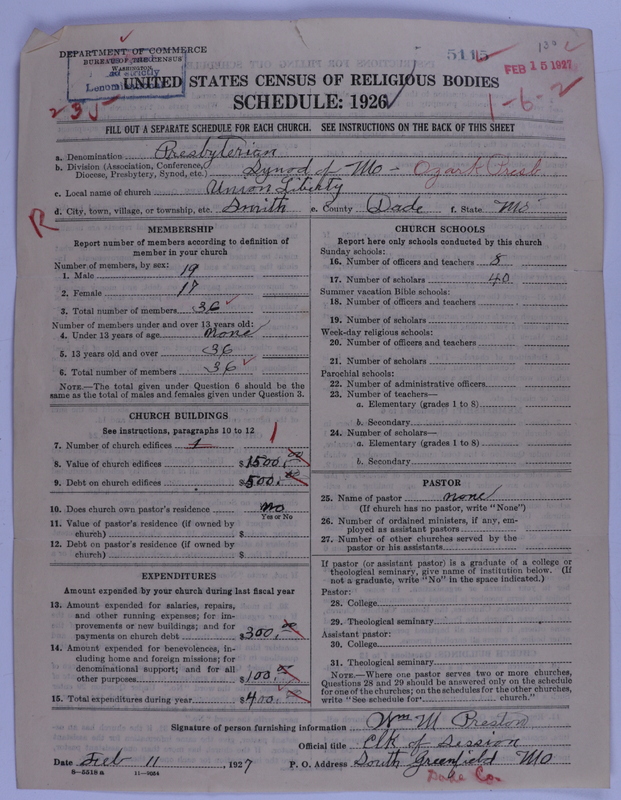 DEPARTMENT OF COMMERCE
BUREAU OF THE CENSUS
WASHINGTON
5115
FEB 15 1927
UNITED STATES CENSUS OF RELIGIOUS BODIES
SCHEDULE: 1926
1-6-2
2-35-
FILL OUT A SEPARATE SCHEDULE FOR EACH CHURCH. SEE INSTRUCTIONS ON THE BACK OF THIS SHEET
a. Denomination Presbyterian
b. Division (Association, Conference, Diocese, Presbytery, Synod, etc.) Synod of Mo - Ozark Presb
c. Local name of church Union Liberty
d. City, town, village, or township, etc. Smith e. County Dade f. State Mo
R
MEMBERSHIP
Report number of members according to definition of
member in your church
Number of members, by sex:
1. Male 19
2. Female 17
3. Total number of members 36
Number of members under and over 13 years old:
4. Under 13 years of age None
5. 13 years old and over 36
6. Total number of members 36
NOTE.—The total given under Question 6 should be the
same as the total of males and females given under Question 3.
CHURCH BUILDINGS
See instructions, paragraphs 10 to 12
7. Number of church edifices 1 1
8. Value of church edifices $1500.00
9. Debt on church edifices $500.00
10. Does church own pastor's residence No
Yes or No
11. Value of pastor's residence (if owned by
church) $
12. Debt on pastor's residence (if owned by
church) $
EXPENDITURES
Amount expended by your church during last fiscal year
13. Amount expended for salaries, repairs,
and other running expenses; for im-
provements or new buildings; and for
payments on church debt $300.00
14. Amount expended for benevolences, in-
cluding home and foreign missions; for
denominational support; and for all
other purposes $100.00
15. Total expenditures during year $400.00
CHURCH SCHOOLS
Report here only schools conducted by this church
Sunday schools:
16. Number of officers and teachers 8
17. Number of scholars 40
Summer vacation Bible schools:
18. Number of officers and teachers
19. Number of scholars
Week-day religious schools:
20. Number of officers and teachers
21. Number of scholars
Parochial schools:
22. Number of administrative officers
23. Number of teachers—
a. Elementary (grades 1 to 8)
b. Secondary
24. Number of scholars—
a. Elementary (grades 1 to 8)
b. Secondary
PASTOR
25. Name of pastor none
(If church has no pastor, write "None")
26. Number of ordained ministers, if any, em-
ployed as assistant pastors
27. Number of other churches served by the
pastor or his assistants
If pastor (or assistant pastor) is a graduate of a college or
theological seminary, give name of institution below. (If
not a graduate, write "No" in the space indicated.)
Pastor:
28. College
29. Theological seminary
Assistant pastor:
30. College
31. Theological seminary
NOTE.—Where one pastor serves two or more churches,
Questions 28 and 29 should be answered only on the schedule
for one of the churches; on the schedules for the other churches,
write "See schedule for church."
Signature of person furnishing information Wm M Preston
Official title Clk of Session
Date Feb 11, 1927 P. O. Address South Greenfield Mo
8-5518 a 11-9084
Dade Co.